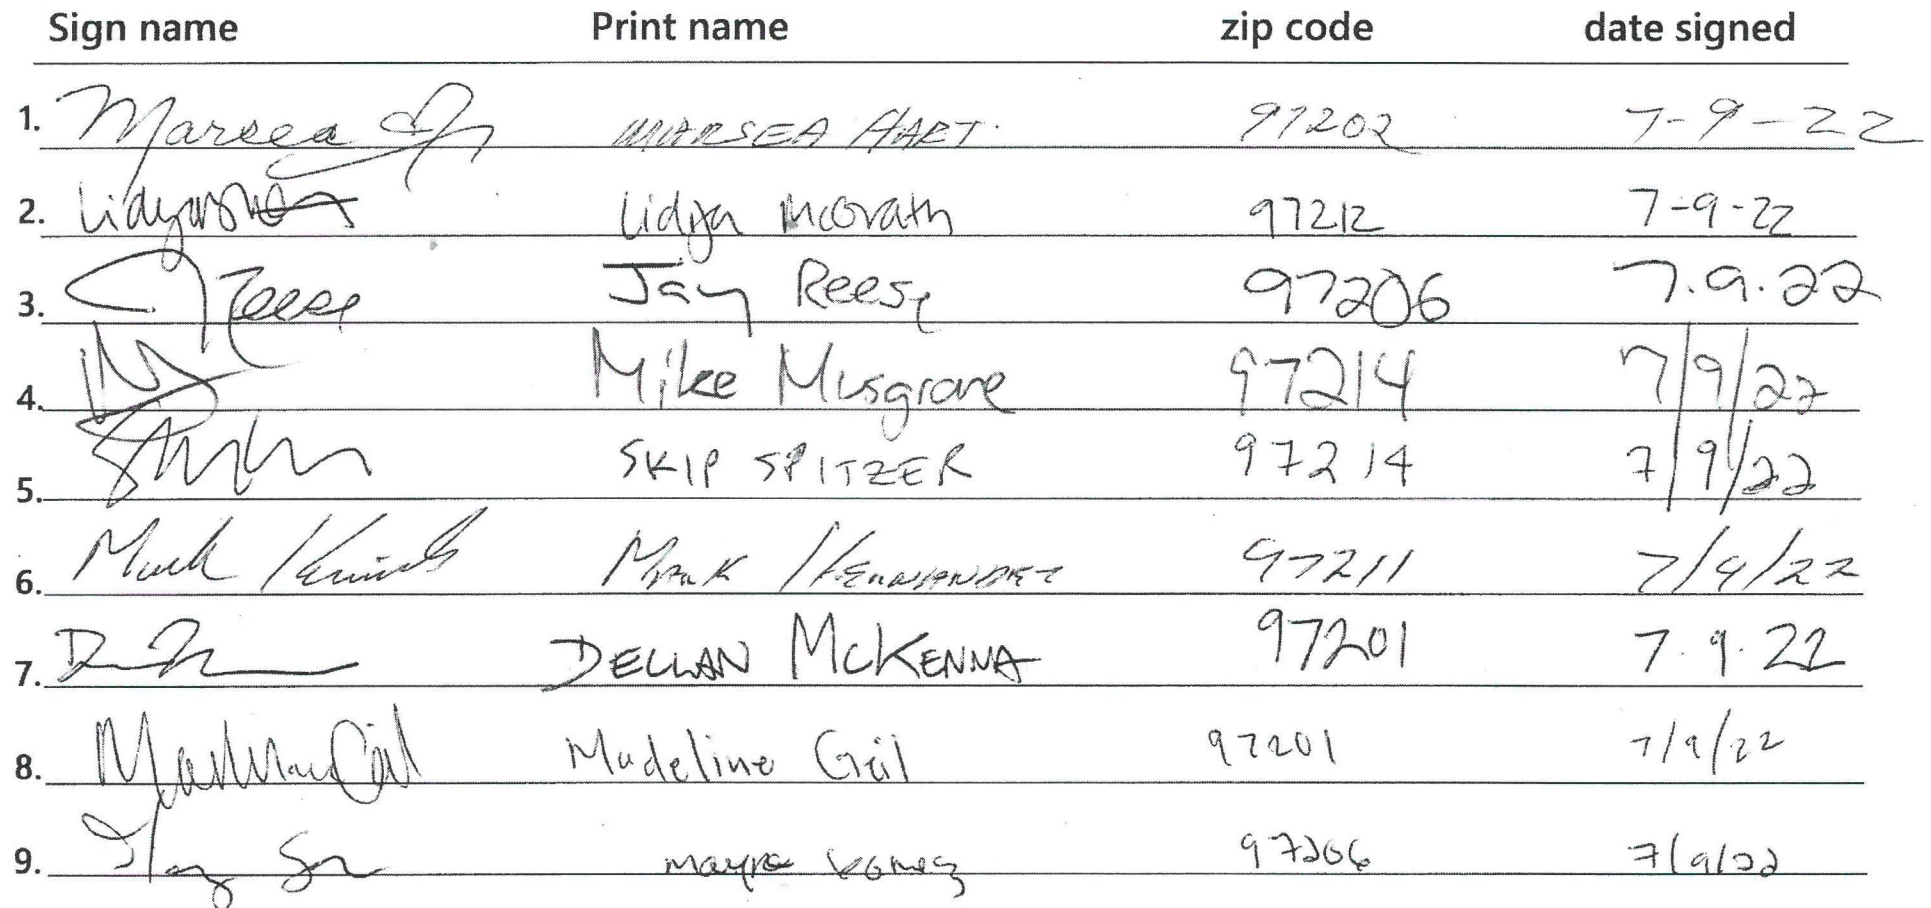 Sign name Print name zip code date signed
1. Marsea MARSEA HART. 97202 7-9-22
2. Lidija McGrath 97212 7-9-22
3. J Reese Jay Reese 97206 7.9.22
4. Mike Musgrove 97214 7/9/22
5. SKIP SPITZER 97214 7/9/22
6. Mark MARK HERNANDEZ 97211 7/9/22
7. DECLAN MCKENNA 97201 7.9.22
8. Madeline Gail 97201 7/9/22
9. Mayra 97206 7/9/22